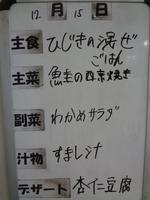 12月15日
主食 ひじきの混ぜ
ごはん
主菜 魚圭の西京焼き
副菜 わかめサラダ
汁物 すまし汁
デザート 杏仁豆腐